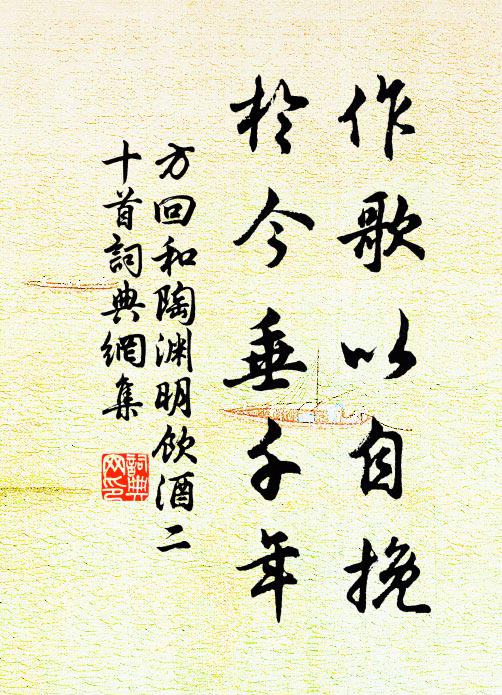 作歌以自挽
於今垂千年
方回和陶渊明饮酒二
十首詞典網集
詞典
网印